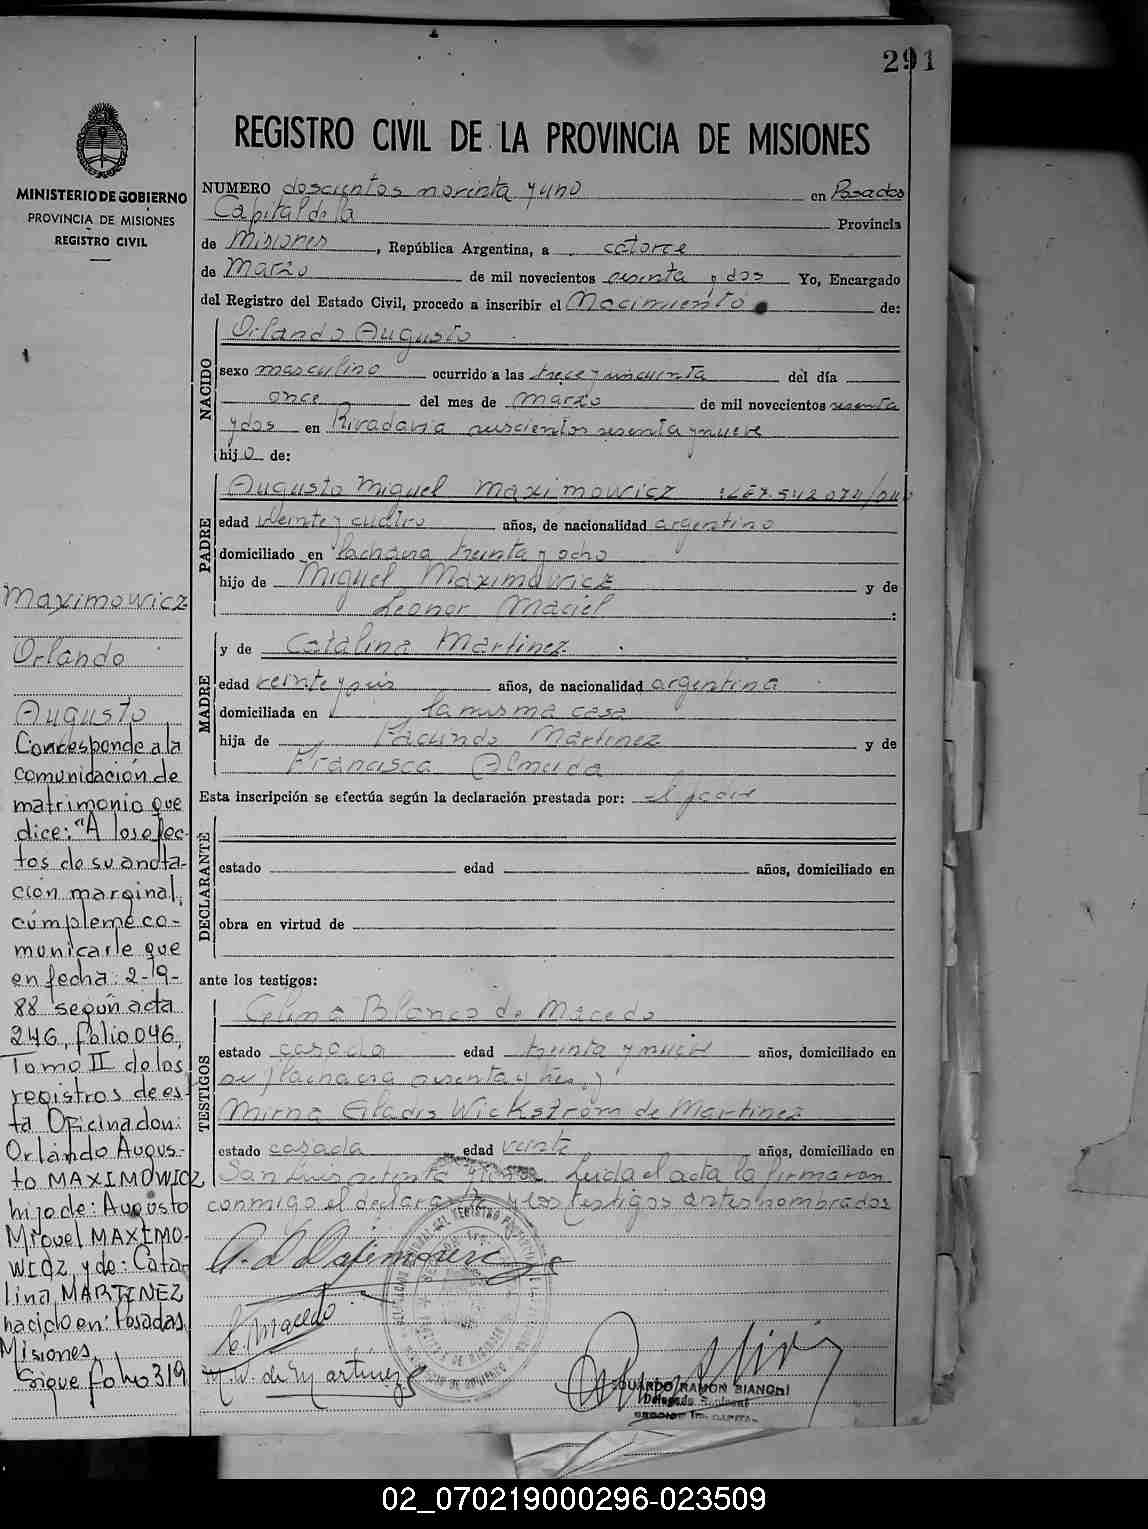 291
REGISTRO CIVIL DE LA PROVINCIA DE MISIONES
MINISTERIO DE GOBIERNO
PROVINCIA DE MISIONES
REGISTRO CIVIL
NUMERO doscientos noventa y uno en Posadas
Capital de la Provincia
de Misiones, República Argentina, a catorce
de Marzo de mil novecientos sesenta y dos Yo, Encargado
del Registro del Estado Civil, procedo a inscribir el Nacimiento de:
NACIDO
Orlando Augusto
sexo masculino ocurrido a las trece y cincuenta del día
once del mes de marzo de mil novecientos sesenta
y dos en Rivadavia seiscientos sesenta y nueve
hijo de:
PADRE
Augusto Miguel Maximowicz
edad veinte y cuatro años, de nacionalidad argentino
domiciliado en la chacra treinta y ocho
hijo de Miguel Maximowicz y de
Leonor Maciel :
MADRE
y de Catalina Martinez
edad veinte y seis años, de nacionalidad argentina
domiciliada en la misma casa
hija de Facundo Martinez y de
Francisca Almeida
Esta inscripción se efectúa según la declaración prestada por: el padre
DECLARANTE
estado edad años, domiciliado en
obra en virtud de
ante los testigos:
TESTIGOS
Celina Blanco de Macedo
estado casada edad treinta y nueve años, domiciliado en
chacra sesenta y tres y
Mirna Gladis Wickström de Martinez
estado casada edad veinte años, domiciliado en
San Luis Leida el acta la firmaron
conmigo el declarante y los testigos antes nombrados
C. Macedo
M. W. de Martinez
EDUARDO RAMON BIANCHI
Maximowicz
Orlando
Augusto
Corresponde a la
comunidación de
matrimonio que
dice: "A los efec-
tos de su anota-
ción marginal,
cúmpleme co-
municarle que
en fecha: 2-9-
88 según acta
246, folio 046,
Tomo II de los
registros de es-
ta Oficina don:
Orlando Augus-
to MAXIMOWICZ
hijo de: Augusto
Miguel MAXIMO-
WICZ y de: Cata-
lina MARTINEZ
nacido en: Posadas,
Misiones,
Sigue folio 319
02_070219000296-023509